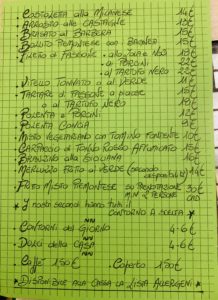 - COSTOLETTA alla MILANESE 14€
- ARROSTO alle CASTAGNE 15€
- BRASATO al BARBERA 15€
- BOLLITO PIEMONTESE con BAGNET 15€
- FILETTO di FASSONE - alla
- ai PORCINI 22€
- al TARTUFO NERO 22€
- VITELLO TONNATO o al VERDE 11€
- TARTARE di FASSONE o
o al TARTUFO NERO 18€
- POLENTA e PORCINI 12€
- POLENTA CONCIA 9€
- MISTO VEGETARIANO con TOMINO FONDENTE 10€
- CARPACCIO di TONNO ROSSO AFFUMICATO 15€
- BRANZINO alla SICILIANA 10€
- MERLUZZO FRITTO al VERDE (secondo disponibilità) 14€
- FRITTO MISTO PIEMONTESE SU PRENOTAZIONE 30€
MIN 2 PERSONE CAD
* I nostri secondi hanno il
CONTORNO A SCELTA *
- CONTORNI del GIORNO 4-6€
- DOLCI della CASA 4-6€
- Caffè 1.50€ - Coperto 1.50€
* DISPONIBILE ALLA CASSA LA LISTA ALLERGENI *